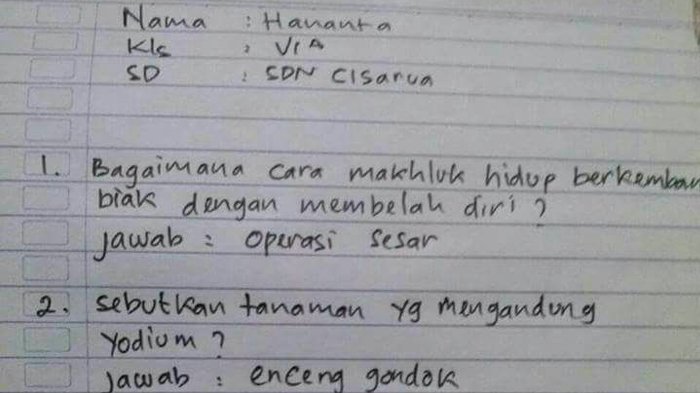 Nama : Hananta
Kls : VI A
SD : SDN Cisarua
1. Bagaimana cara makhluk hidup berkemban
biak dengan membelah diri?
jawab : operasi sesar
2. sebutkan tanaman yg mengandung
yodium?
jawab : enceng gondok